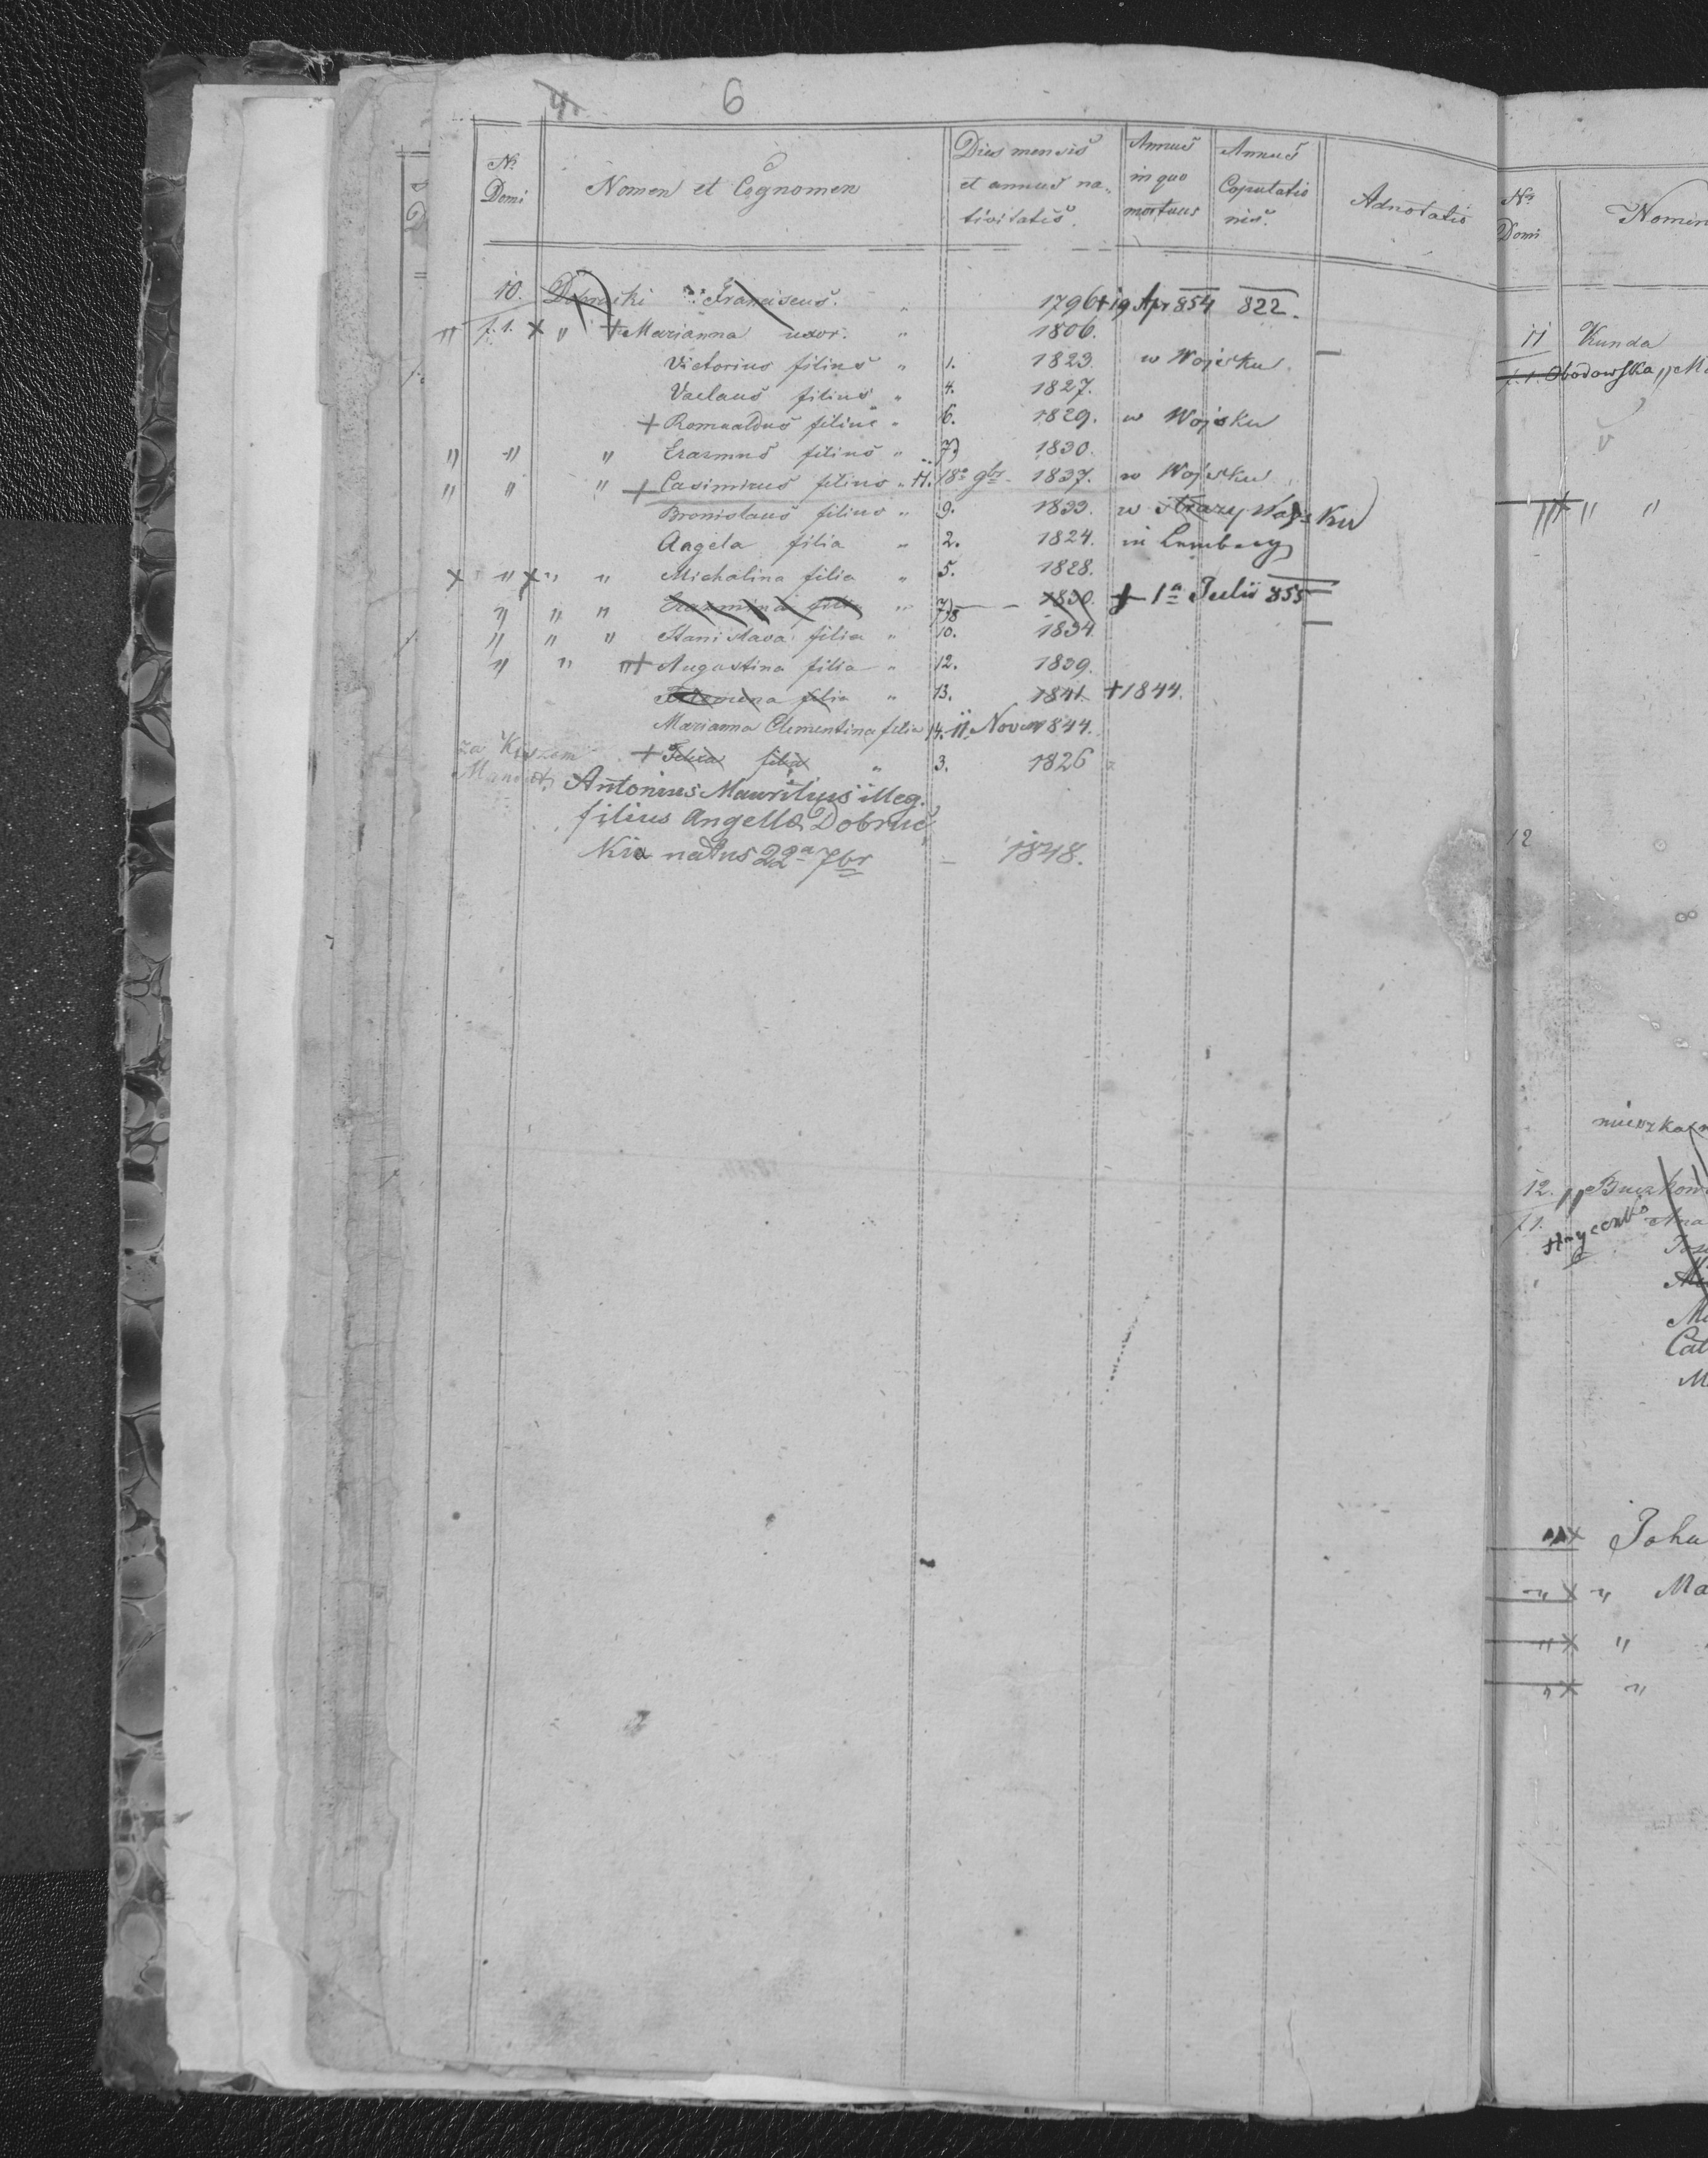 6
Nº Domi | Nomen et Cognomen | Dies mensis et annus nativitatis. | Annus in quo mortuus | Annus Copulationis. | Adnotatio
10. Dobrucki Franciscus. " 1796 + 19 Apr 854 822.
" f. 1. × " + Marianna uxor. " 1806.
Victorius filius " 1. 1823. w Wojsku
Vaclaus filius " 4. 1827.
+ Romualdus filius " 6. 1829. w Wojsku
" " " Erazmus filius " 7) 1830.
" " " + Casimirus filius " 11. 18ª 9br 1837. w Wojsku
Bronislaus filius " 9. 1833. w Wojsku
Angela filia " 2. 1824. in Lemberg
× " × " " Michalina filia " 5. 1828.
" " " Erazmina filia " 7) 8 1830. + 1ª Julii 855
" " " Stanislava filia " 10. 1834.
" " " + Augustina filia " 12. 1839.
filia " 13. 1841. + 1844.
Marianna Clementina filia 14. 11. Novem 844.
+ Felixa filia " 3. 1826
Antonius Mauritius illeg.
filius Angellæ Dobruc
Kia natus 22ª 7br – 1848.
Nº Domi | Nomen
11 Kunda
f. 1. Obodowska " M
" "
12
mieszka
12. " Buczkow
f. 1.
Cat
M
" × Joha
" × " Ma
" × "
" × "